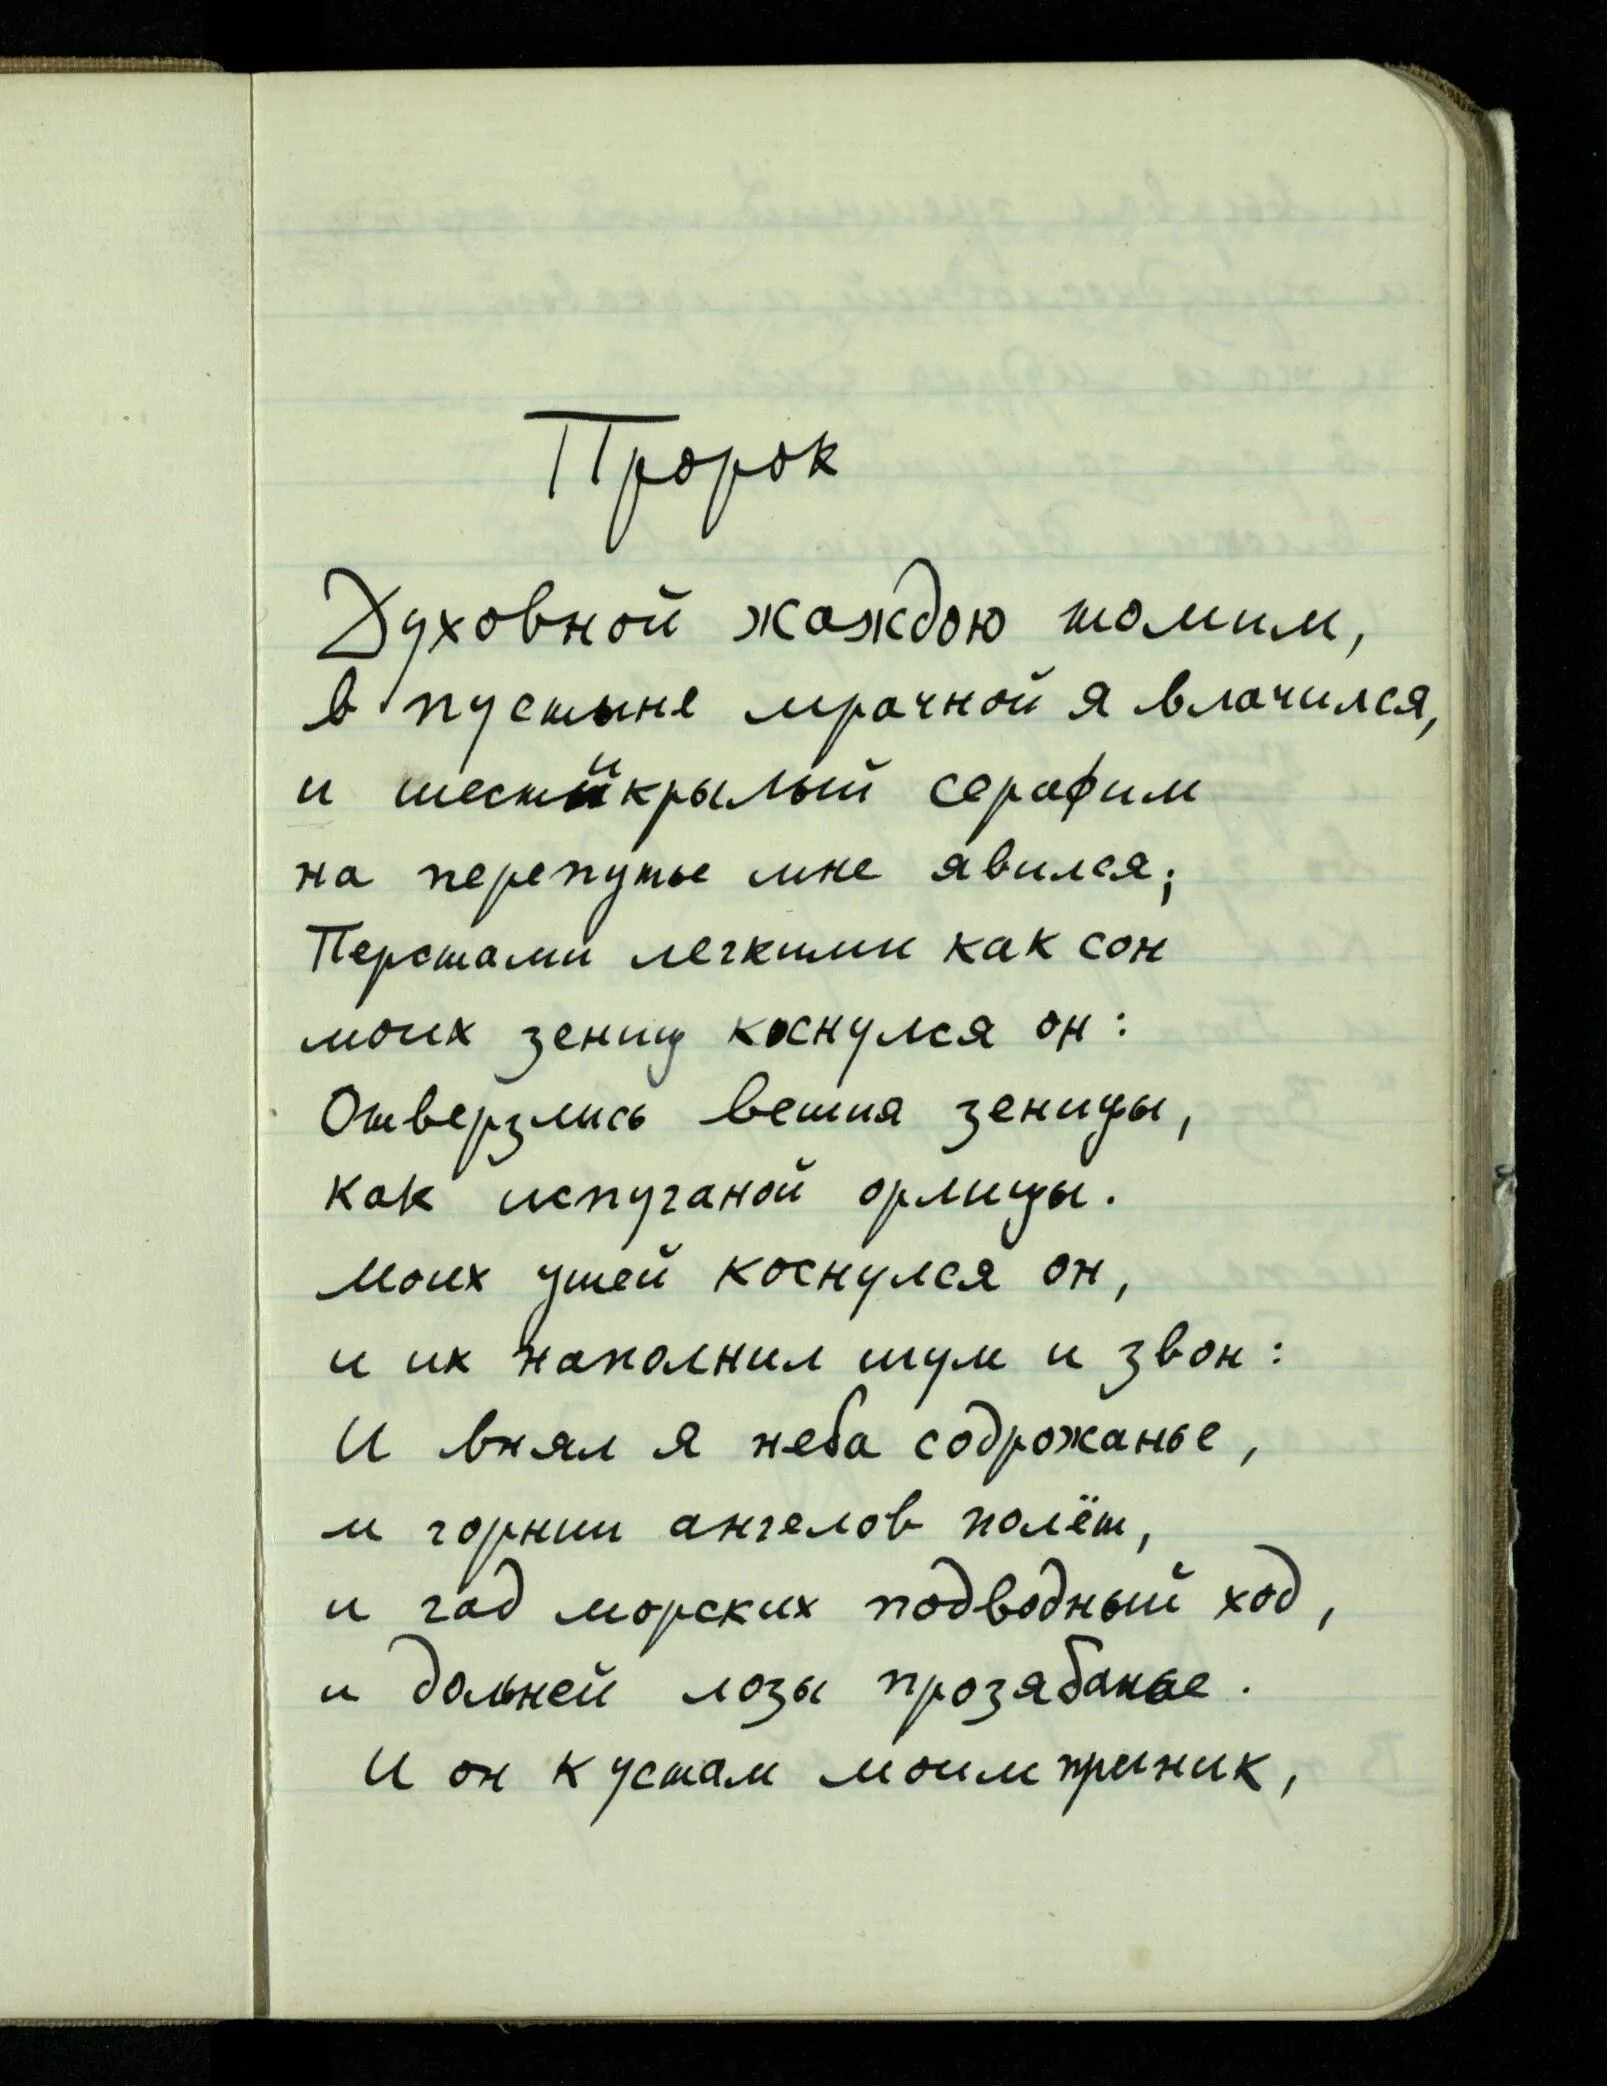 Пророк
Духовной жаждою томим,
в пустыне мрачной я влачился,
и шестикрылый серафим
на перепутье мне явился;
Перстами легкими как сон
моих зениц коснулся он:
Отверзлись вещия зеницы,
как испуганой орлицы.
Моих ушей коснулся он,
и их наполнил шум и звон:
И внял я неба содрожанье,
и горнии ангелов полёт,
и гад морских подводный ход,
и дольней лозы прозябанье.
И он к устам моим приник,